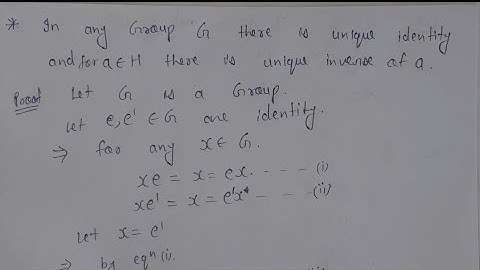 * In any Group G there is unique identity
and for a ∈ H there is unique inverse of a.
Proof Let G is a Group.
Let e, e' ∈ G are identity.
⇒ for any x ∈ G.
xe = x = ex. - - - - (i)
xe' = x = e'x - - - (ii)
Let x = e'
⇒ by eqn (i).